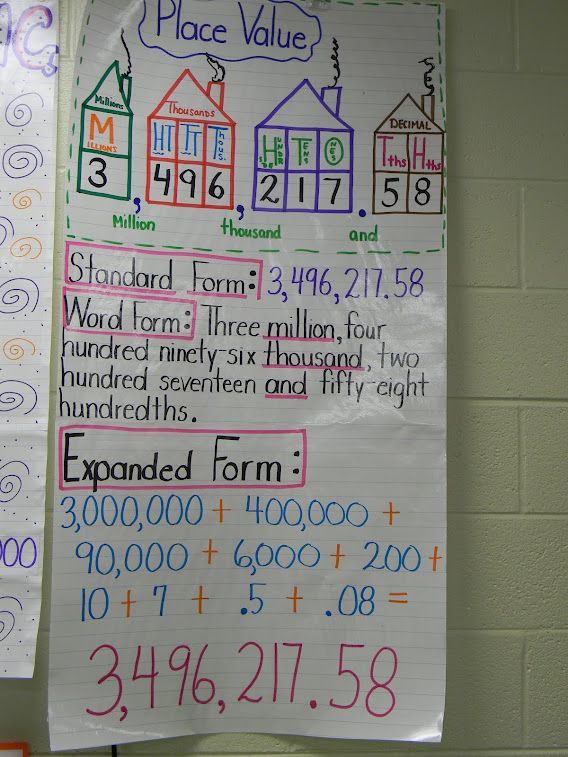 Place Value
Millions
Thousands
DECIMAL
M ILLIONS HT TT Thous. HUNDR TENS ONES Tths Hths
3 , 4 9 6 , 2 1 7 . 5 8
Million thousand and
Standard Form: 3,496,217.58
Word Form: Three million, four
hundred ninety-six thousand, two
hundred seventeen and fifty-eight
hundredths.
Expanded Form:
3,000,000 + 400,000 +
90,000 + 6,000 + 200 +
10 + 7 + .5 + .08 =
3,496,217.58